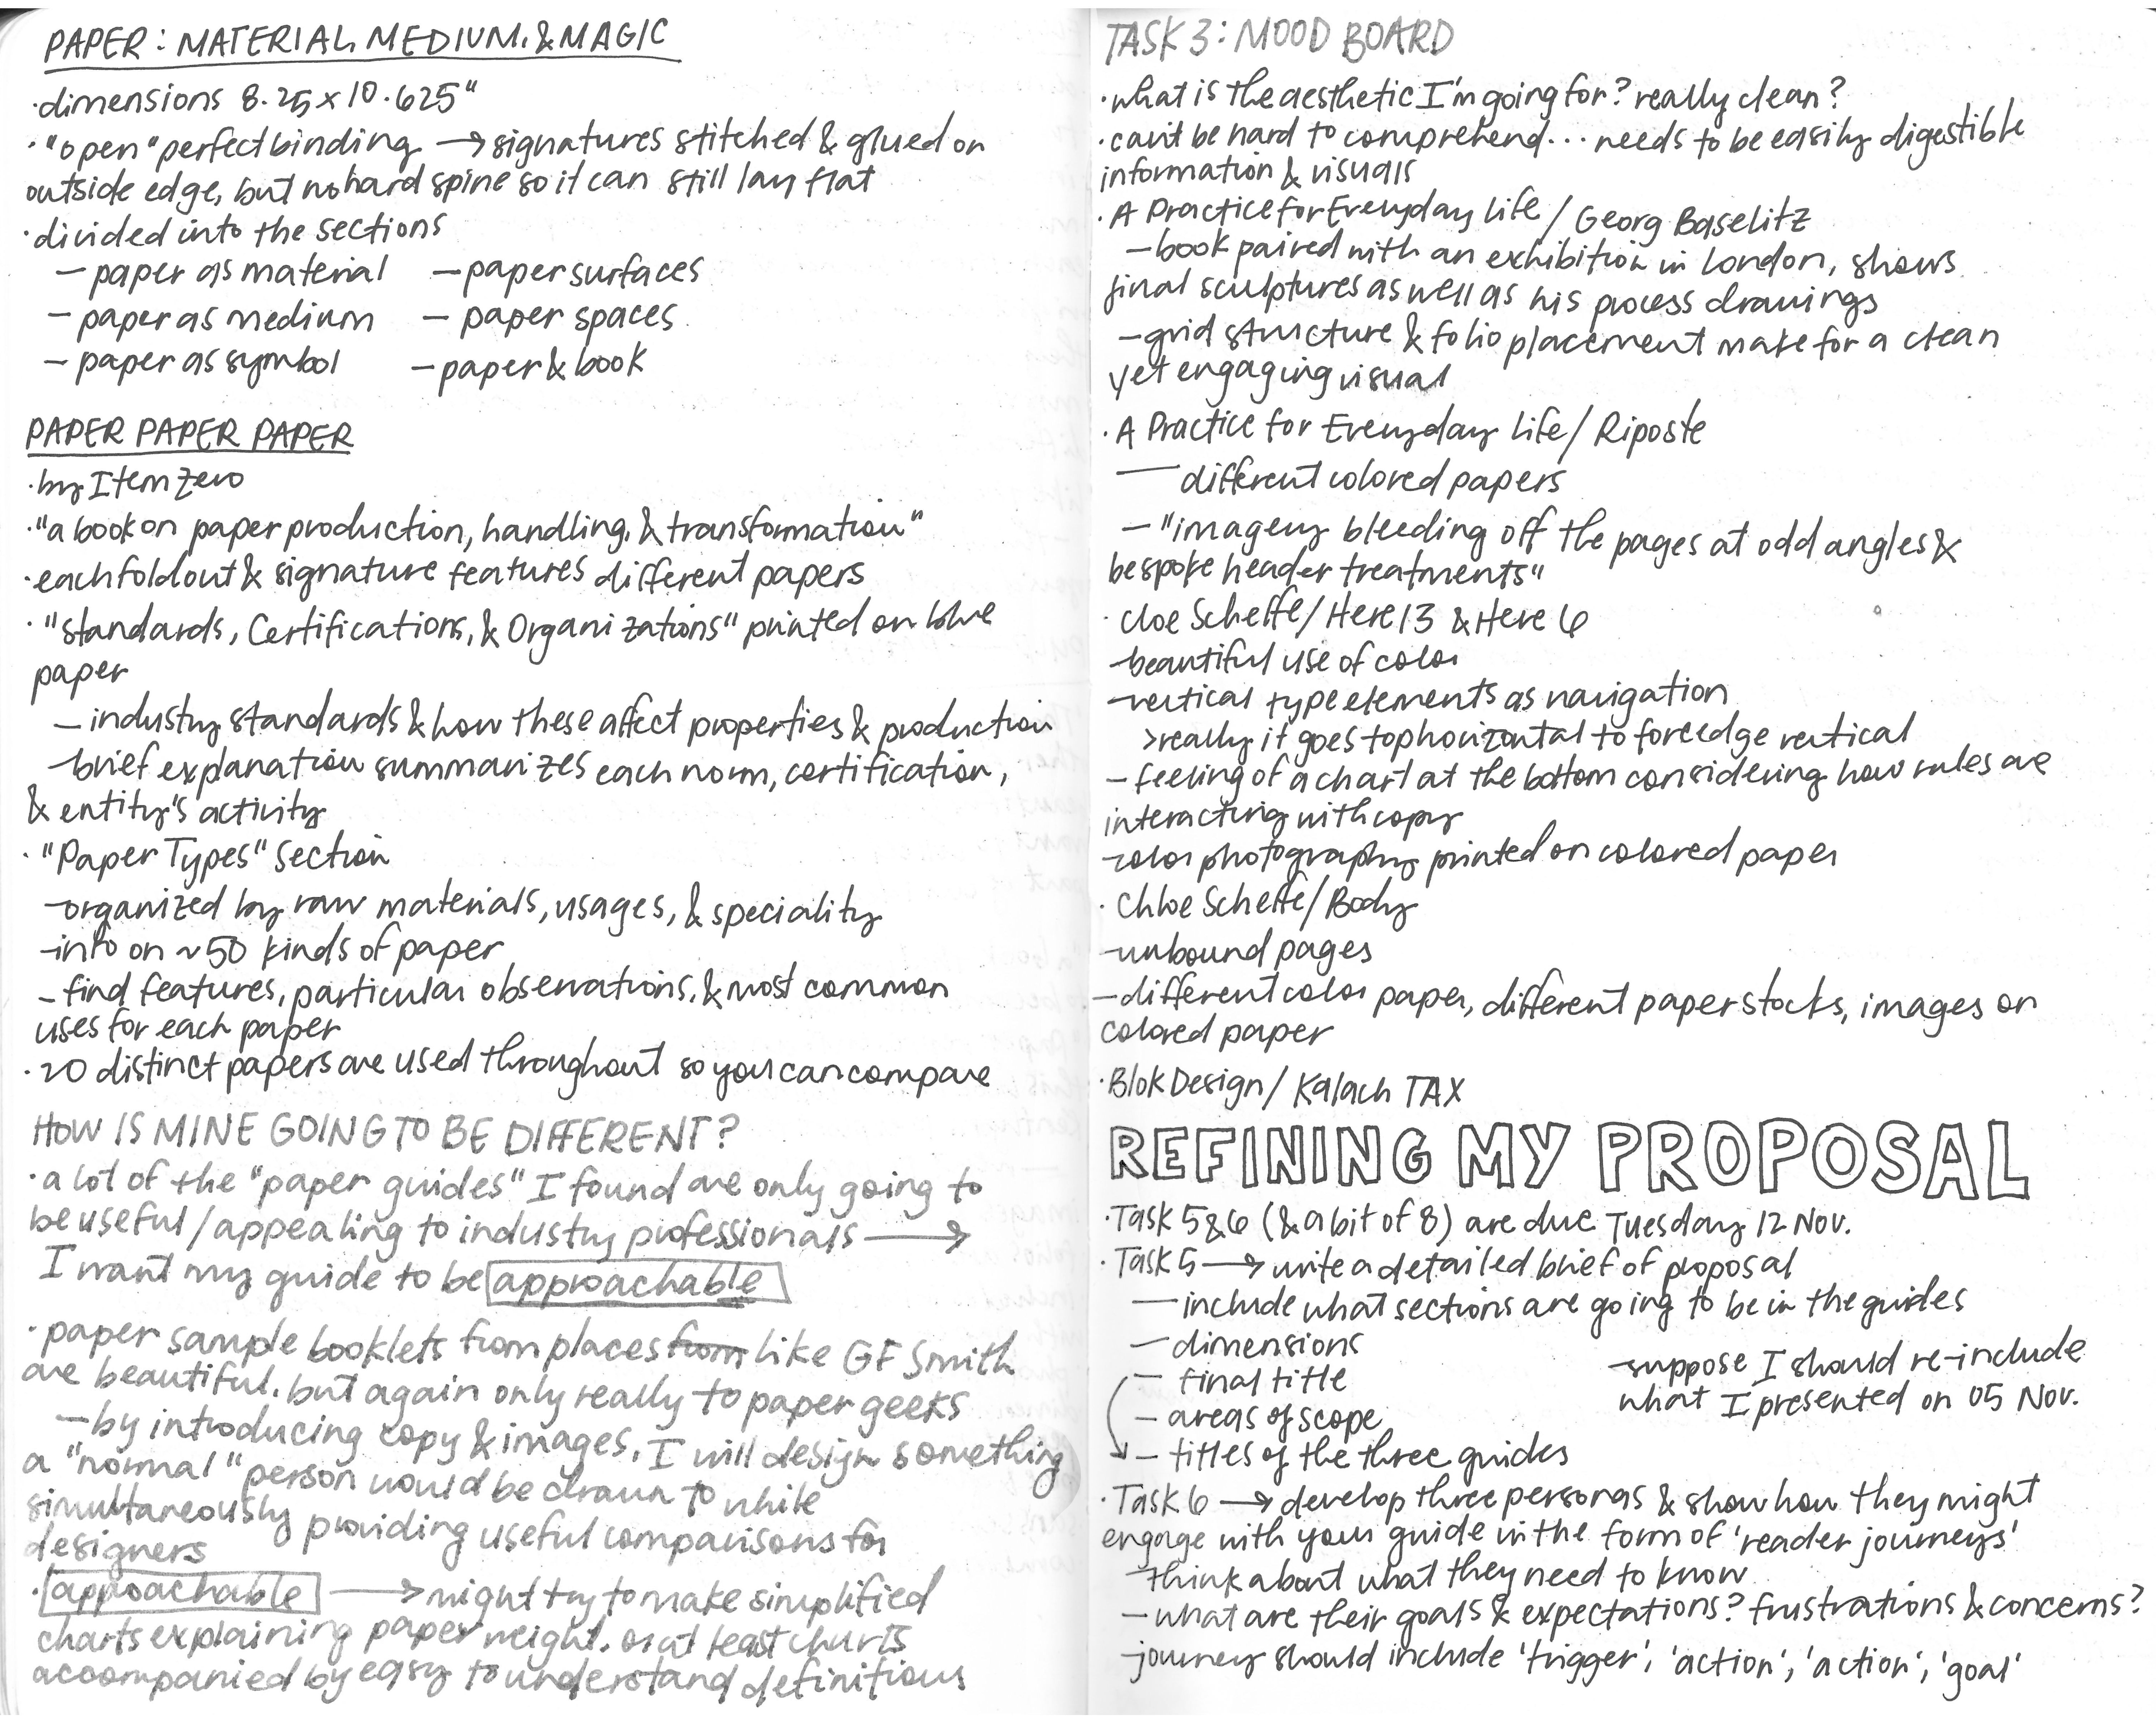 PAPER: MATERIAL, MEDIUM, & MAGIC
·dimensions 8.25 x 10.625"
·"open" perfect binding → signatures stitched & glued on
outside edge, but no hard spine so it can still lay flat
·divided into the sections
— paper as material — paper surfaces
— paper as medium — paper spaces
— paper as symbol — paper & book
PAPER PAPER PAPER
·by Item Zero
·"a book on paper production, handling, & transformation"
·each foldout & signature features different papers
·"Standards, Certifications, & Organizations" printed on blue
paper
— industry standards & how these affect properties & production
—brief explanation summarizes each norm, certification,
& entity's activity
·"Paper Types" section
—organized by raw materials, usages, & speciality
—info on ~50 kinds of paper
—find features, particular observations, & most common
uses for each paper
·20 distinct papers are used throughout so you can compare
HOW IS MINE GOING TO BE DIFFERENT?
·a lot of the "paper guides" I found are only going to
be useful/appealing to industry professionals →
I want my guide to be approachable
·paper sample booklets from places from like GF Smith
are beautiful, but again only really to paper geeks
—by introducing copy & images, I will design something
a "normal" person would be drawn to while
simultaneously providing useful comparisons for
designers
·approachable → might try to make simplified
charts explaining paper weight, or at least charts
accompanied by easy to understand definitions
TASK 3: MOOD BOARD
·what is the aesthetic I'm going for? really clean?
·can't be hard to comprehend... needs to be easily digestible
information & visuals
·A Practice for Everyday Life / Georg Baselitz
—book paired with an exhibition in London, shows
final sculptures as well as his process drawings
—grid structure & folio placement make for a clean
yet engaging visual
·A Practice for Everyday Life / Riposte
— different colored papers
—"imagery bleeding off the pages at odd angles &
bespoke header treatments"
·Cloe Scheffe / Here 13 & Here 6
—beautiful use of color
—vertical type elements as navigation
>really it goes top horizontal to foreedge vertical
—feeling of a chart at the bottom considering how rules are
interacting with copy
—color photography printed on colored paper
·Chloe Scheffe / Body
—unbound pages
—different color paper, different paper stocks, images on
colored paper
·Blok Design / Kalach TAX
REFINING MY PROPOSAL
·Task 5 & 6 (& a bit of 8) are due Tuesday 12 Nov.
·Task 5 → write a detailed brief of proposal
— include what sections are going to be in the guides
— dimensions
— final title
— areas of scope
— titles of the three guides
—suppose I should re-include
what I presented on 05 Nov.
·Task 6 → develop three personas & show how they might
engage with your guide in the form of 'reader journeys'
—think about what they need to know
—what are their goals & expectations? frustrations & concerns?
—journey should include 'trigger', 'action', 'action', 'goal'